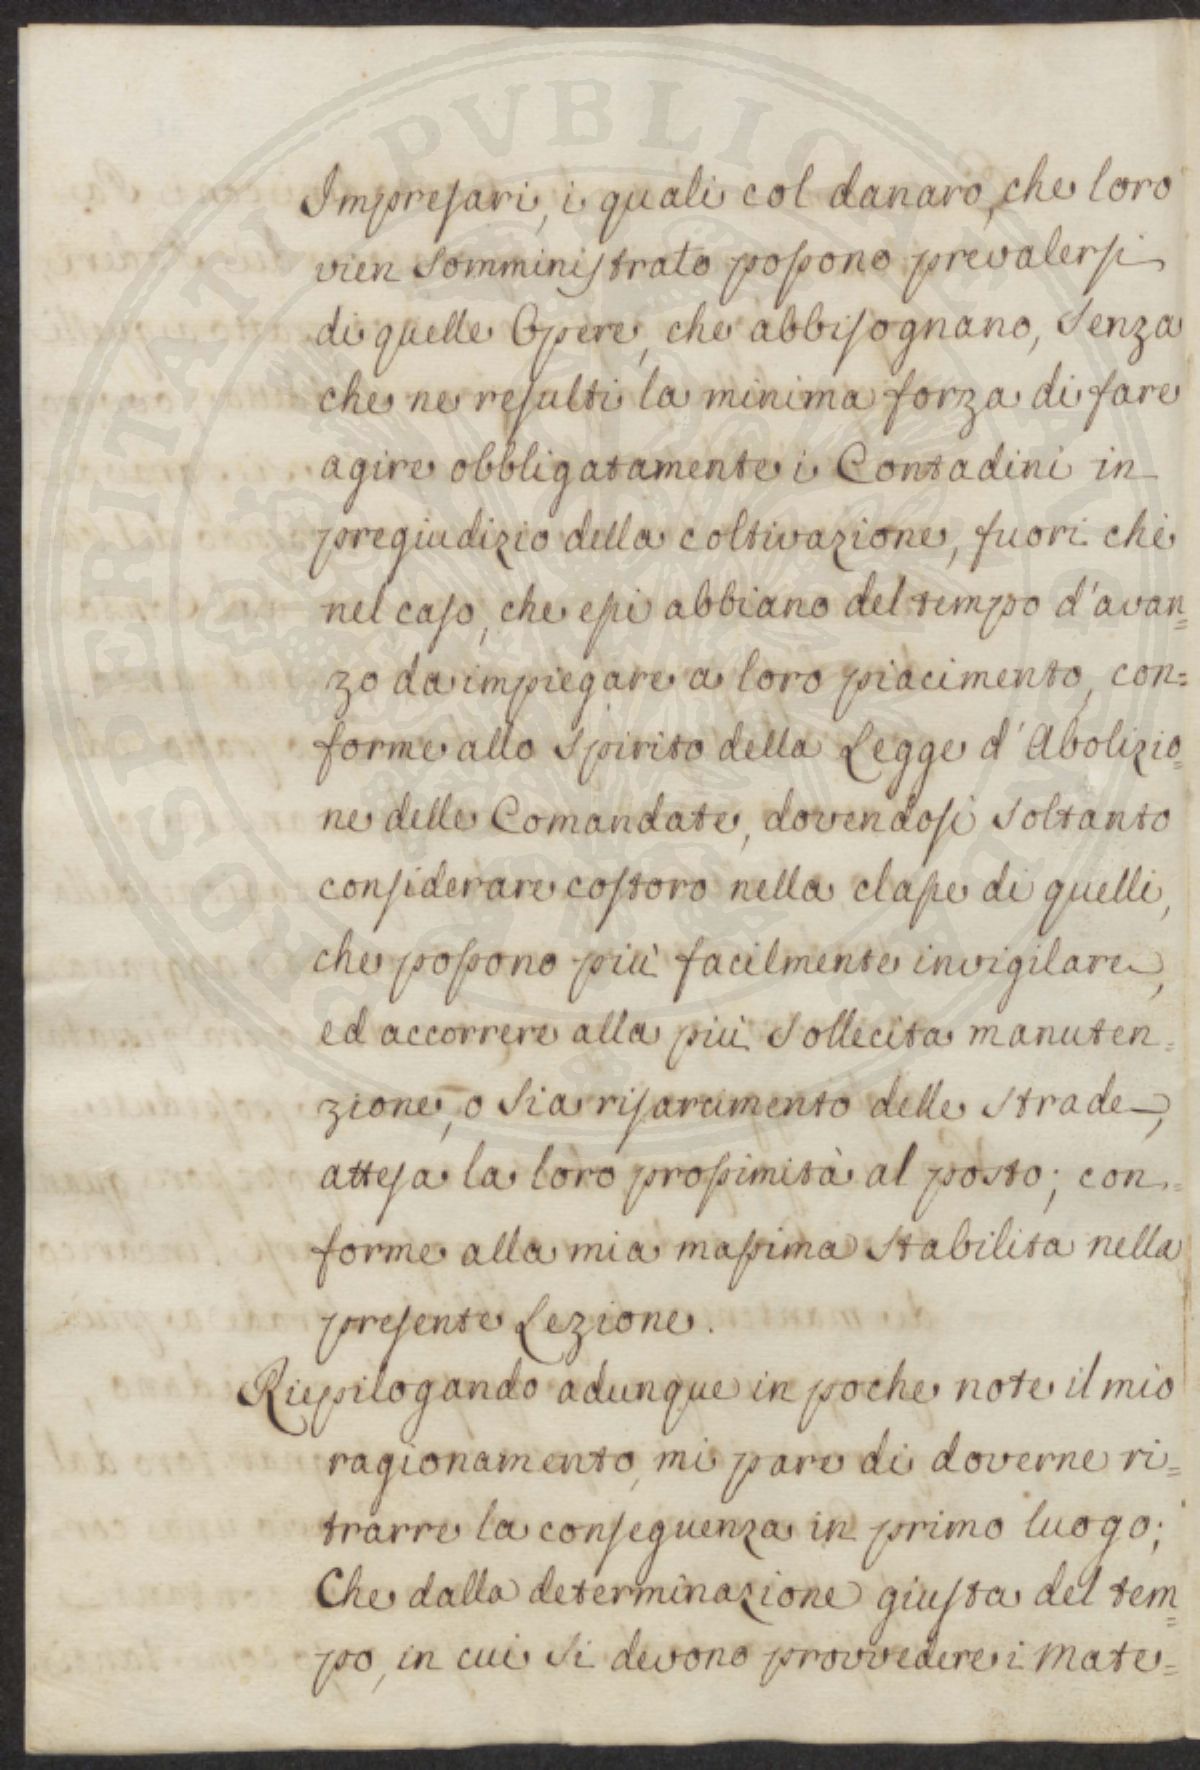 PROSPERITATI PVBLICAE
Impresari, i quali col danaro, che loro
vien somministrato possono prevalersi
di quelle Opere, che abbisognano, senza
che ne resulti la minima forza di fare
agire obbligatamente i Contadini in
pregiudizio della coltivazione, fuori chè
nel caso, che essi abbiano del tempo d'avan=
zo da impiegare a loro piacimento, con=
forme allo spirito della Legge d'Abolizio=
ne delle Comandate, dovendosi soltanto
considerare costoro nella classe di quelli,
che possono più facilmente invigilare,
ed accorrere alla più sollecita manuten=
zione, o sia risarcimento delle strade,
attesa la loro prossimità al posto; con=
forme alla mia massima stabilita nella
presente Lezione.
Riepilogando adunque in poche note il mio
ragionamento, mi pare di doverne ri=
trarre la conseguenza in primo luogo;
Che dalla determinazione giusta del tem=
po, in cui si devono provvedere i Mate=